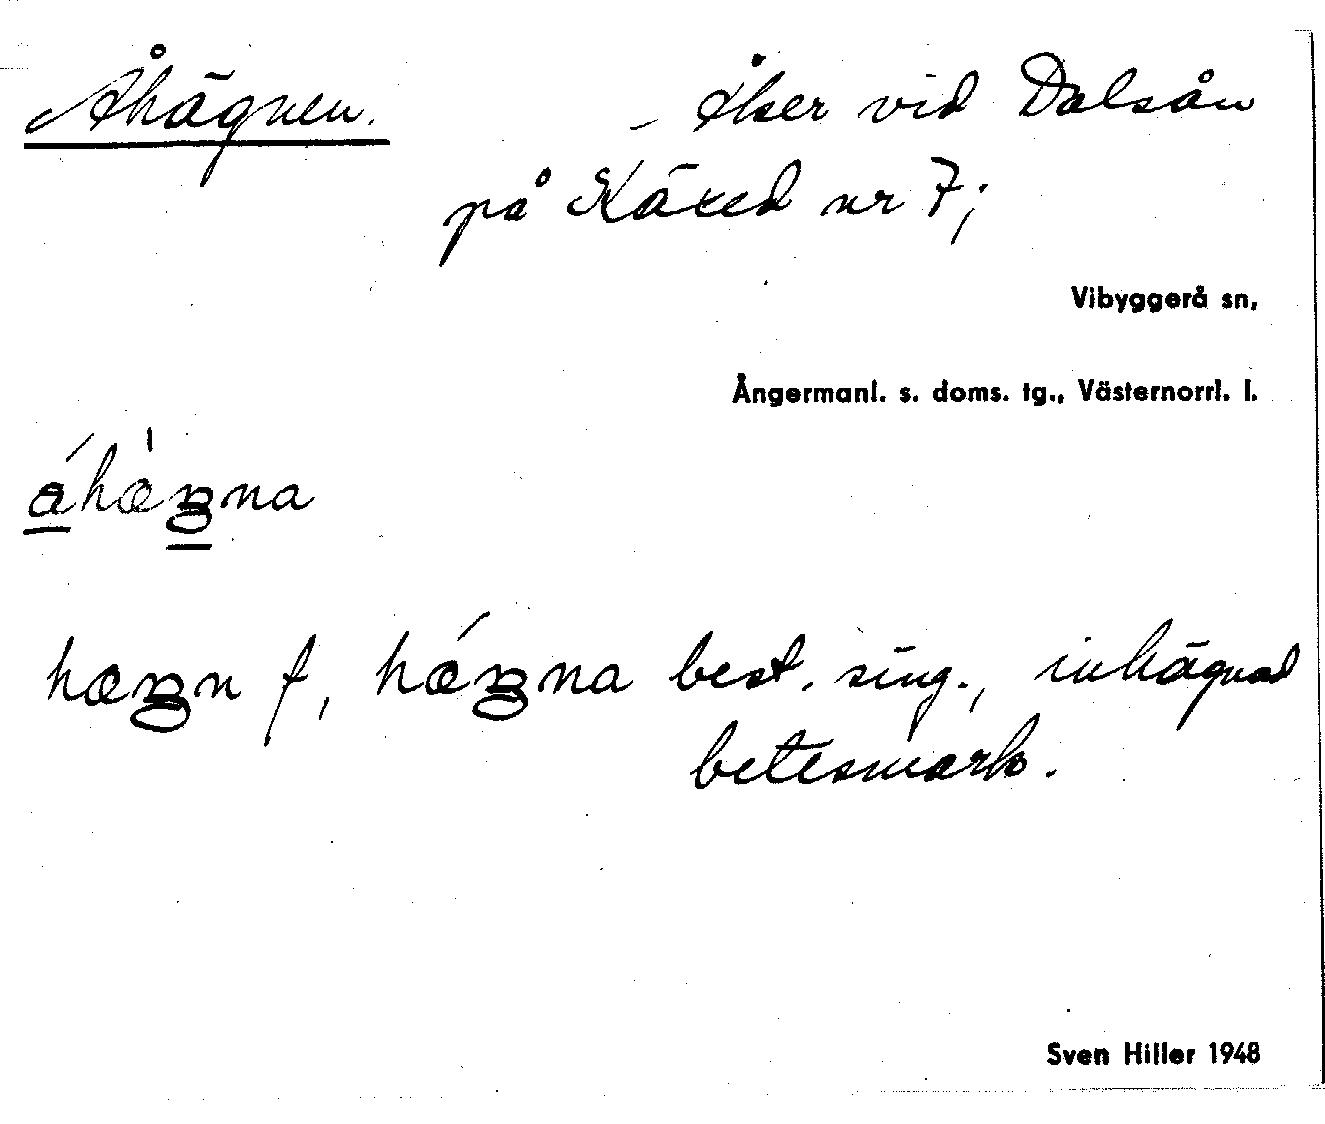 Åhägnen. – åker vid Dalsån
på Käxed nr 7;
Vibyggerå sn,
Ångermanl. s. doms. tg., Västernorrl. l.
best. sing., inhägnad
betesmark.
Sven Hiller 1948